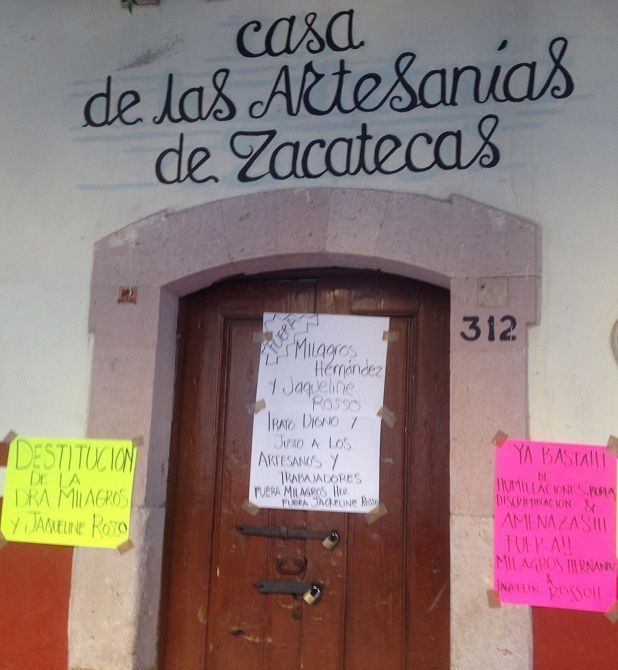 casa
de las Artesanías
de Zacatecas
312
FUERA
Milagros
Hernández
y Jaqueline
Rosso
Trato Digno y
Justo a los
Artesanos y
Trabajadores
Fuera Milagros Her.
Fuera Jaqueline Rosso
DESTITUCION
DE LA
DRA MILAGROS
y JAQUELINE ROSSO
YA BASTA!!!
DE
HUMILLACIONES, BURLAS
DISCRIMINACION &
AMENAZAS!!!
FUERA!!
MILAGROS HERNANDEZ
&
JAQUELIN ROSSO!!